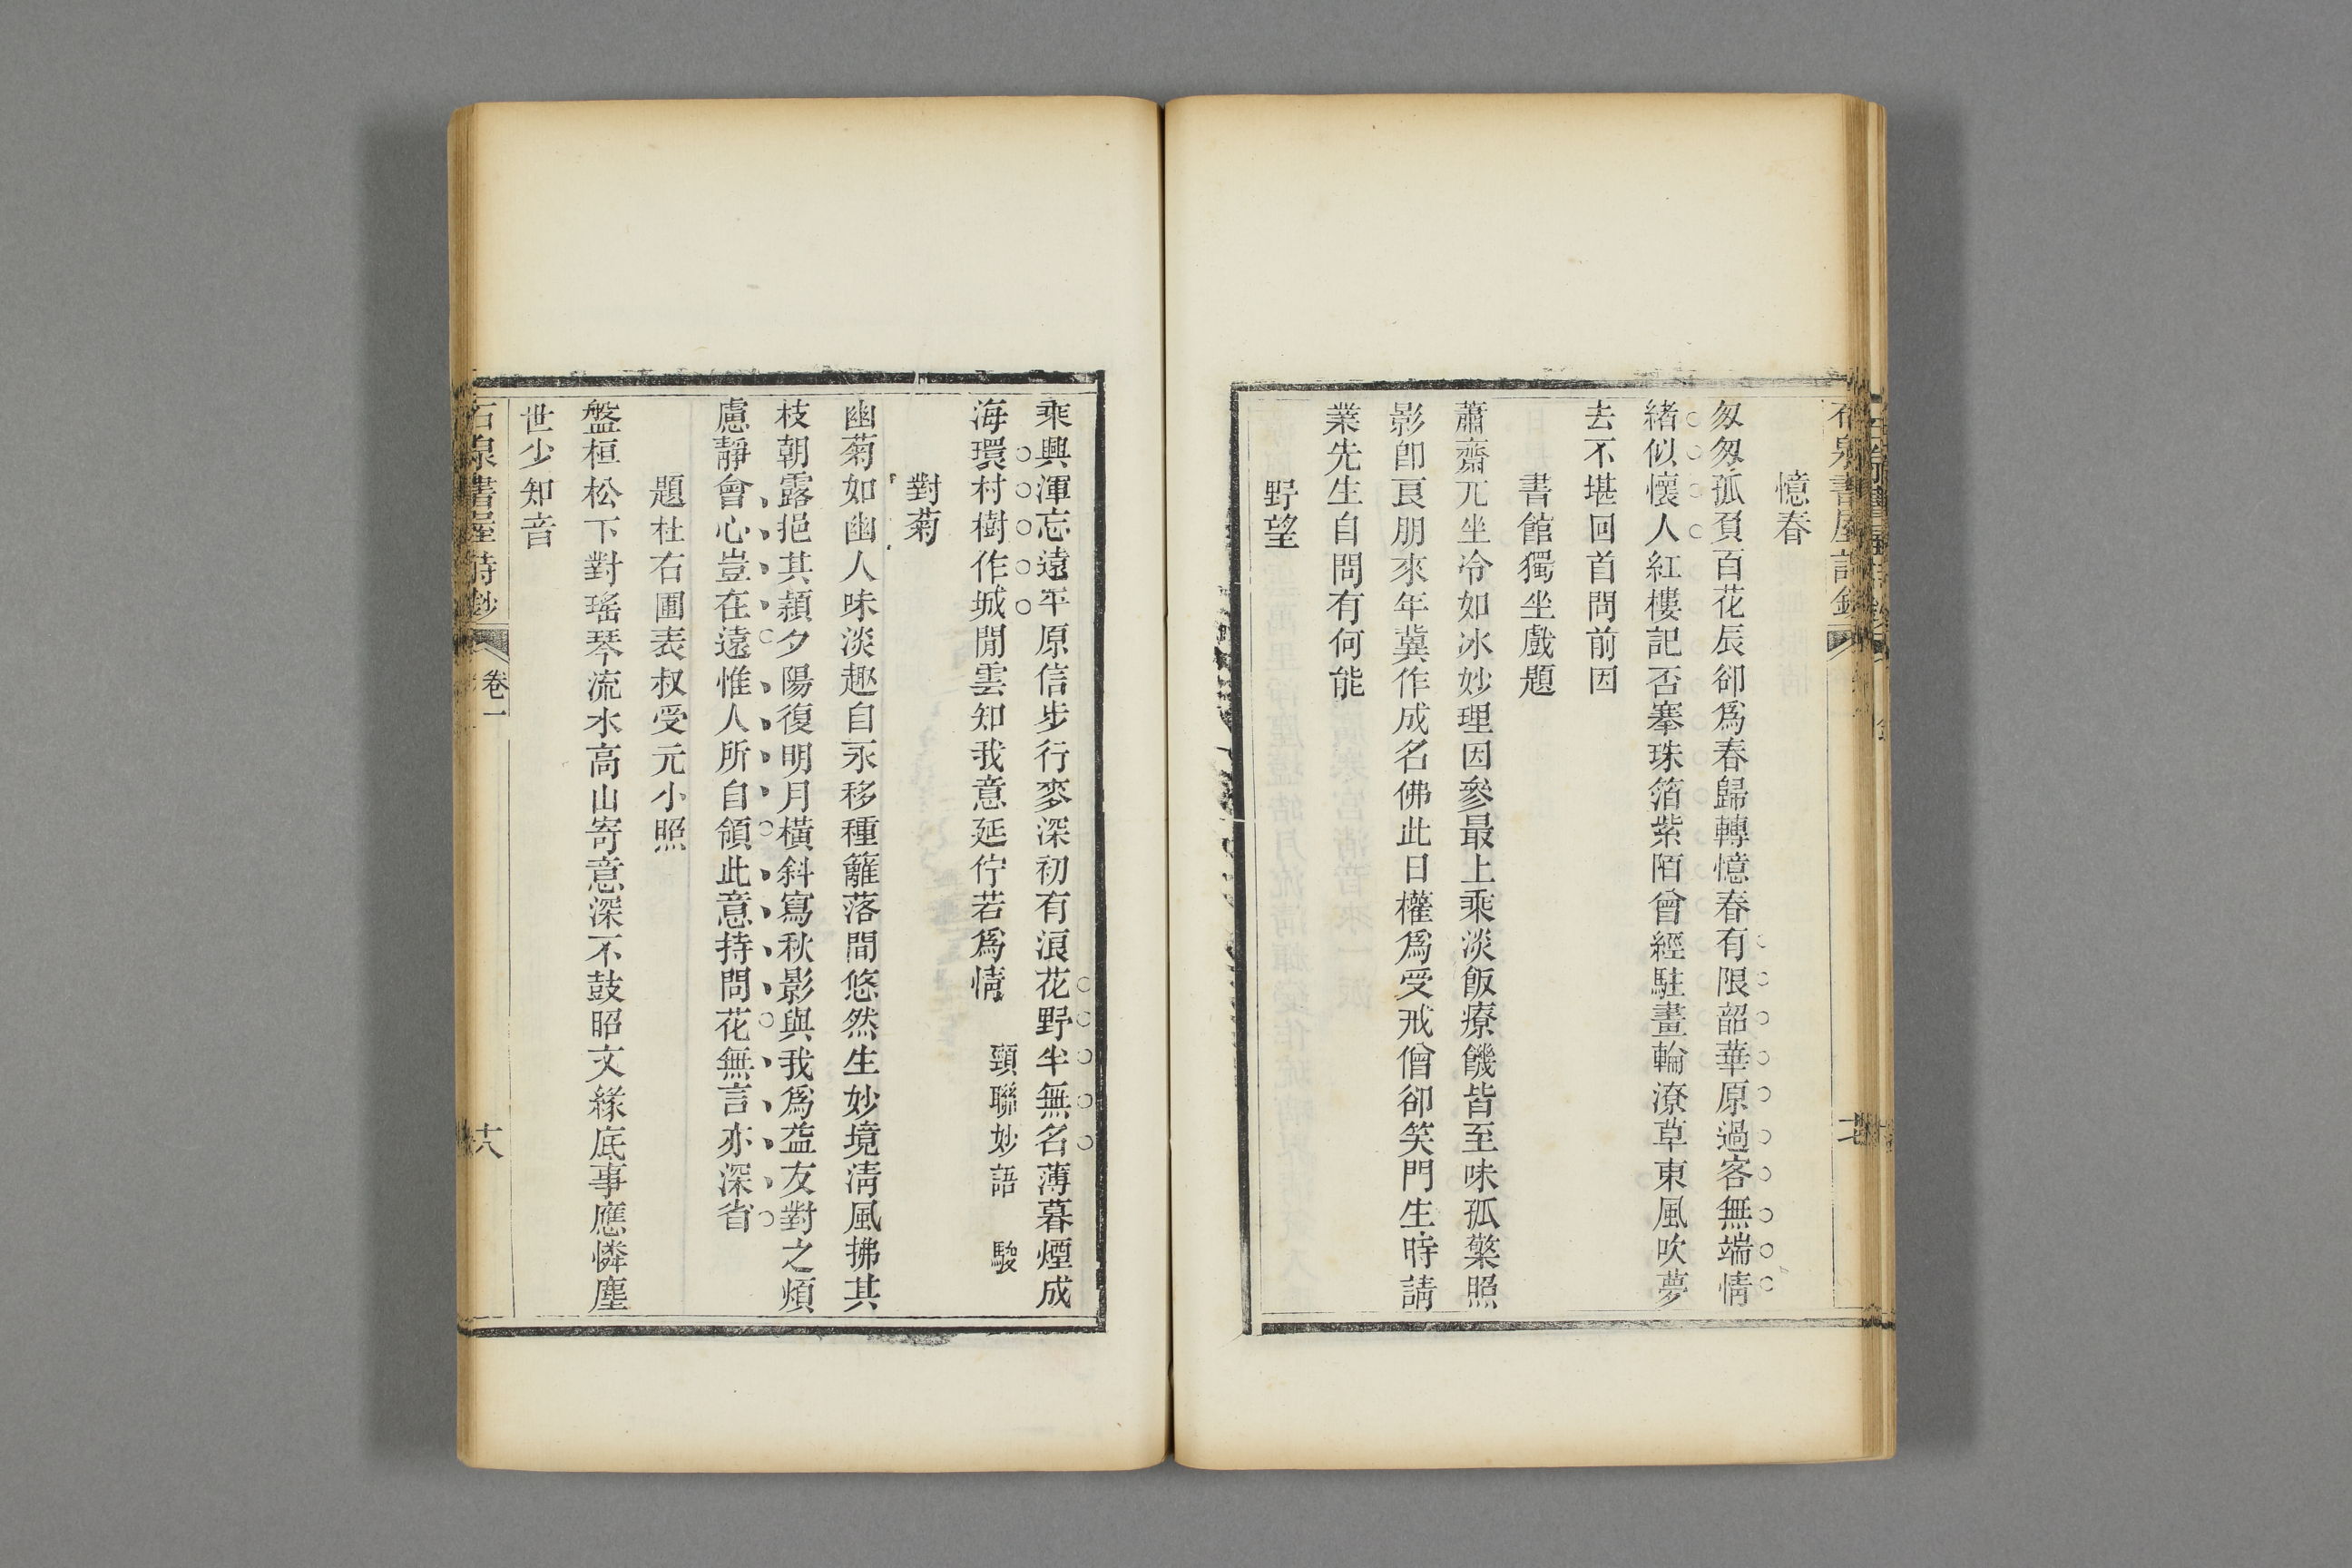 石泉書屋詩鈔
憶春
匆匆孤負百花辰卻爲春歸轉憶春有限韶華原過客無端情
緒似懷人紅樓記否搴珠箔紫陌曾經駐畫輪潦草東風吹夢
去不堪回首問前因
書館獨坐戲題
蕭齋兀坐冷如冰妙理因參最上乘淡飯療饑皆至味孤檠照
影卽良朋來年冀作成名佛此日權爲受戒僧卻笑門生時請
業先生自問有何能
野望
乘興渾忘遠平原信步行麥深初有浪花野半無名薄暮煙成
海環村樹作城閒雲知我意延佇若爲情
頸聯妙語 駿
對菊
幽菊如幽人味淡趣自永移種籬落間悠然生妙境淸風拂其
枝朝露挹其頴夕陽復明月橫斜寫秋影與我爲益友對之煩
慮靜會心豈在遠惟人所自領此意持問花無言亦深省
題杜右圃表叔受元小照
盤桓松下對瑤琴流水高山寄意深不鼓昭文緣底事應憐塵
世少知音
石泉書屋詩鈔
卷一
十八